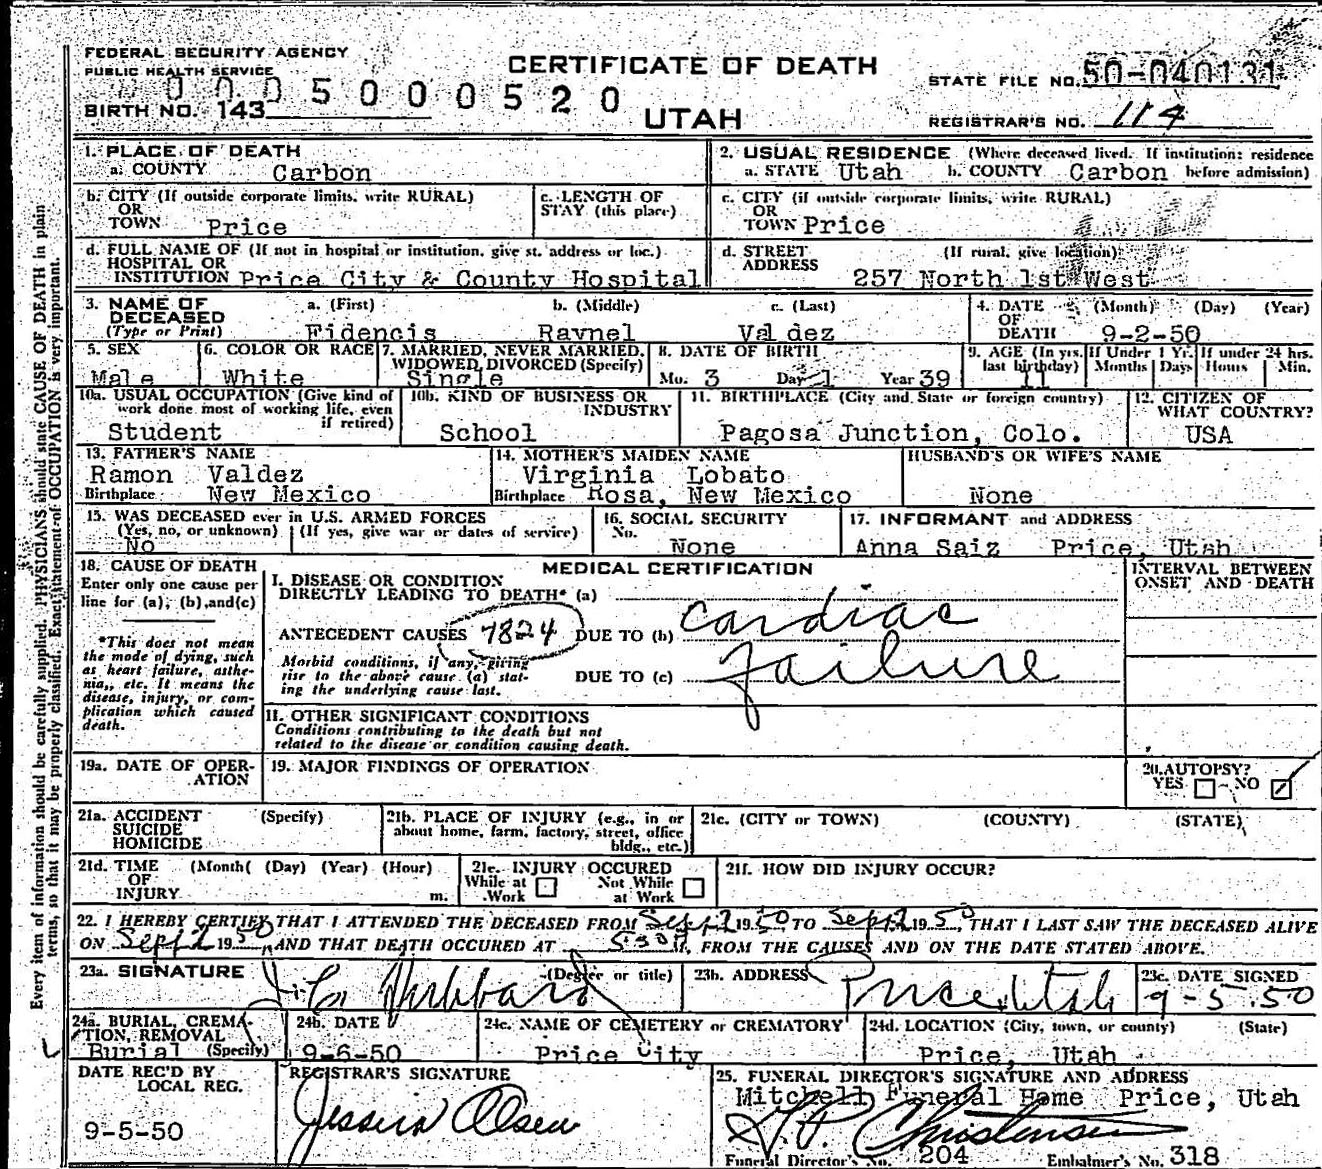 FEDERAL SECURITY AGENCY
PUBLIC HEALTH SERVICE
CERTIFICATE OF DEATH
STATE FILE NO. 50-040131
0005000520
BIRTH NO. 143
UTAH
REGISTRAR'S NO. 114
1. PLACE OF DEATH
a. COUNTY Carbon
2. USUAL RESIDENCE (Where deceased lived. If institution: residence before admission)
a. STATE Utah b. COUNTY Carbon
b. CITY (If outside corporate limits, write RURAL)
OR
TOWN Price
c. LENGTH OF
STAY (this place)
c. CITY (if outside corporate limits, write RURAL)
OR
TOWN Price
d. FULL NAME OF (If not in hospital or institution, give st. address or loc.)
HOSPITAL OR
INSTITUTION Price City & County Hospital
d. STREET (If rural, give location)
ADDRESS 257 North 1st West
3. NAME OF a. (First) b. (Middle) c. (Last)
DECEASED
(Type or Print) Fidencis Ravnel Valdez
4. DATE (Month) (Day) (Year)
OF
DEATH 9-2-50
5. SEX
Male
6. COLOR OR RACE
White
7. MARRIED, NEVER MARRIED,
WIDOWED, DIVORCED (Specify)
Single
8. DATE OF BIRTH
Mo. 3 Day 1 Year 39
9. AGE (In yrs. last birthday)
11
If Under 1 Yr.
Months Days
If under 24 hrs.
Hours Min.
10a. USUAL OCCUPATION (Give kind of
work done most of working life, even
if retired)
Student
10b. KIND OF BUSINESS OR
INDUSTRY
School
11. BIRTHPLACE (City and State or foreign country)
Pagosa Junction, Colo.
12. CITIZEN OF
WHAT COUNTRY?
USA
13. FATHER'S NAME
Ramon Valdez
Birthplace New Mexico
14. MOTHER'S MAIDEN NAME
Virginia Lobato
Birthplace Rosa, New Mexico
HUSBAND'S OR WIFE'S NAME
None
15. WAS DECEASED ever in U.S. ARMED FORCES
(Yes, no, or unknown) (If yes, give war or dates of service)
No
16. SOCIAL SECURITY
No.
None
17. INFORMANT and ADDRESS
Anna Saiz Price, Utah
18. CAUSE OF DEATH
Enter only one cause per
line for (a), (b), and (c)
*This does not mean
the mode of dying, such
as heart failure, asthe-
nia, etc. It means the
disease, injury, or com-
plication which caused
death.
MEDICAL CERTIFICATION
I. DISEASE OR CONDITION
DIRECTLY LEADING TO DEATH* (a)
ANTECEDENT CAUSES 7824 DUE TO (b) Cardiac
Morbid conditions, if any, giving
rise to the above cause (a) stat-
ing the underlying cause last.
DUE TO (c) failure
II. OTHER SIGNIFICANT CONDITIONS
Conditions contributing to the death but not
related to the disease or condition causing death.
INTERVAL BETWEEN
ONSET AND DEATH
19a. DATE OF OPER-
ATION
19. MAJOR FINDINGS OF OPERATION
20. AUTOPSY?
YES NO
21a. ACCIDENT (Specify)
SUICIDE
HOMICIDE
21b. PLACE OF INJURY (e.g., in or
about home, farm, factory, street, office
bldg., etc.)
21c. (CITY or TOWN) (COUNTY) (STATE)
21d. TIME (Month( (Day) (Year) (Hour)
OF
INJURY m.
21e. INJURY OCCURED
While at Work Not While at Work
21f. HOW DID INJURY OCCUR?
22. I HEREBY CERTIFY THAT I ATTENDED THE DECEASED FROM Sept 2 1950 TO Sept 2 1950, THAT I LAST SAW THE DECEASED ALIVE
ON Sept 2 1950, AND THAT DEATH OCCURED AT 5:30, FROM THE CAUSES AND ON THE DATE STATED ABOVE.
23a. SIGNATURE (Degree or title)
Hubbard
23b. ADDRESS
Price, Utah
23c. DATE SIGNED
9-5-50
24a. BURIAL, CREMA-
TION, REMOVAL
(Specify)
Burial
24b. DATE
9-6-50
24c. NAME OF CEMETERY or CREMATORY
Price City
24d. LOCATION (City, town, or county) (State)
Price, Utah
DATE REC'D BY
LOCAL REG.
9-5-50
REGISTRAR'S SIGNATURE
Jessica Olsen
25. FUNERAL DIRECTOR'S SIGNATURE AND ADDRESS
Mitchell Funeral Home Price, Utah
Christensen
Funeral Director's No. 204 Embalmer's No. 318
Every item of information should be carefully supplied. PHYSICIANS should state CAUSE OF DEATH in plain
terms, so that it may be properly classified. Exact statement of OCCUPATION is very important.